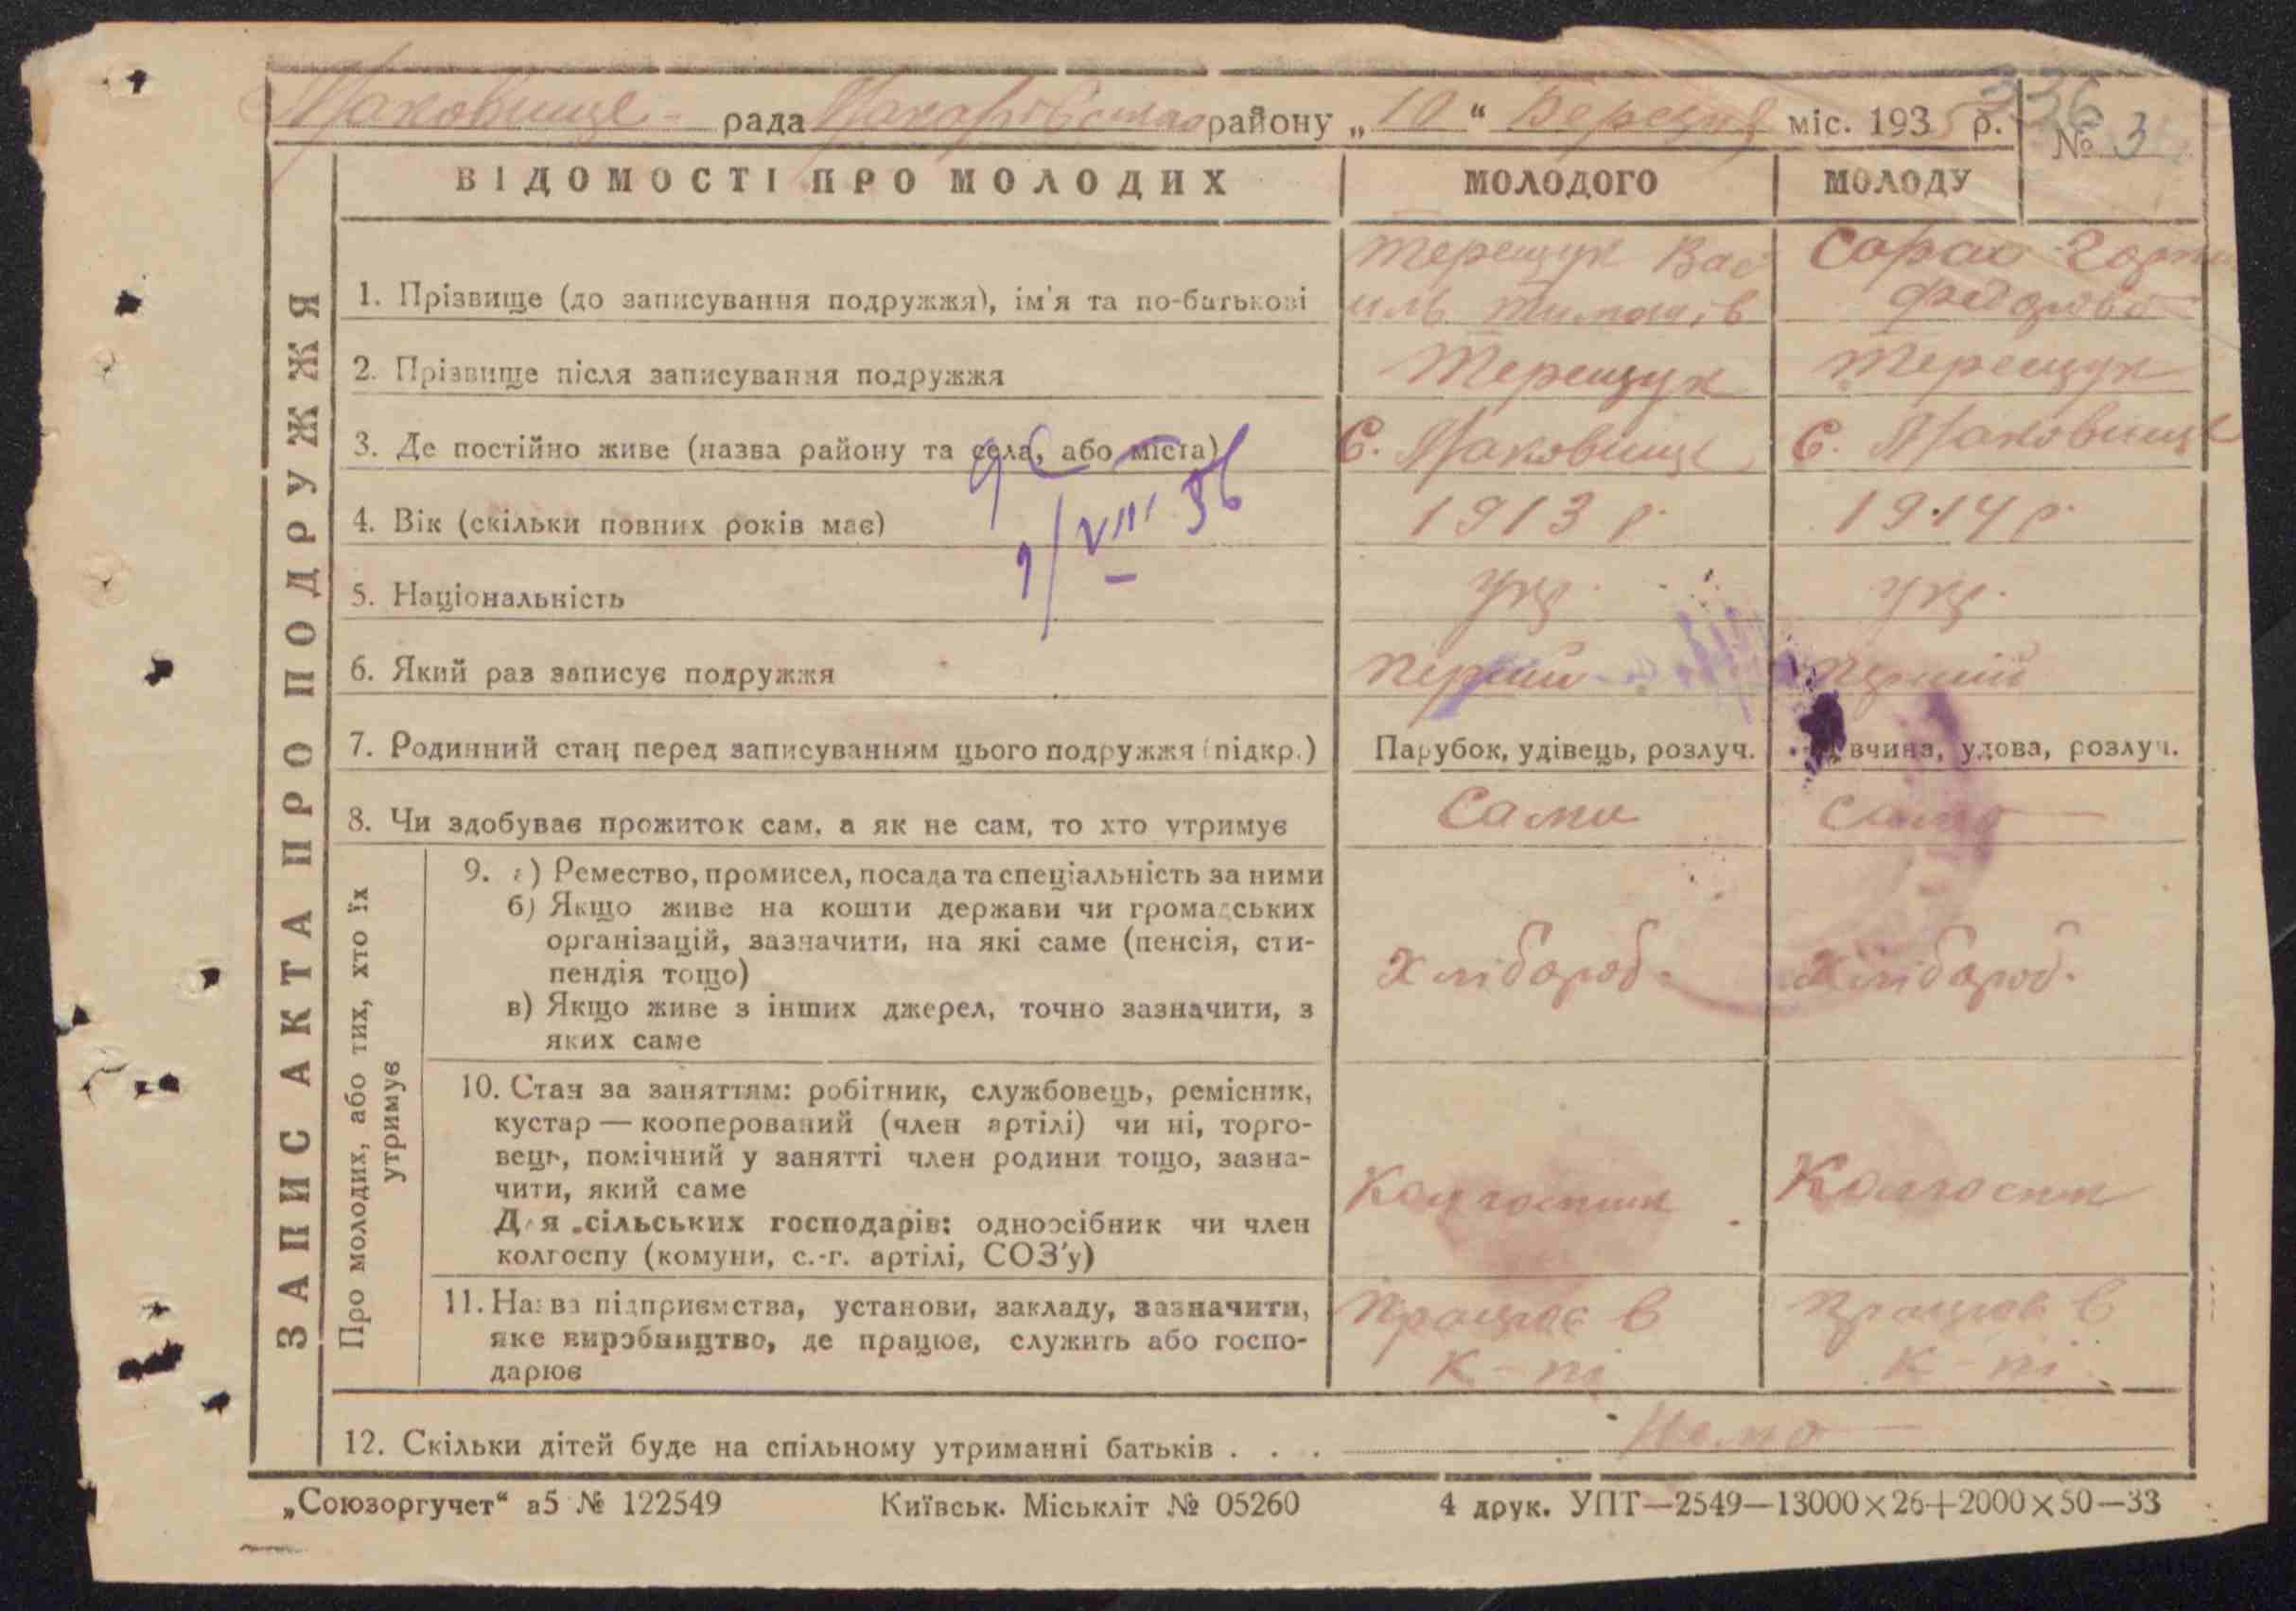 336
Маковище - рада Макарівського району „ 10 “ Березня міс. 1935 р. № 3
ВІДОМОСТІ ПРО МОЛОДИХ МОЛОДОГО МОЛОДУ
ЗАПИС АКТА ПРО ПОДРУЖЖЯ
Терещук Вас
иль Тимохів
Федорова
1. Прізвище (до записування подружжя), ім'я та по-батькові
2. Прізвище після записування подружжя Терещук Терещук
3. Де постійно живе (назва району та села, або міста) С. Маковище С. Маковище
4. Вік (скільки повних років має) 1913 р. 1914 р.
1/VIII 36
5. Національність укр. укр.
6. Який раз записує подружжя перший перший
7. Родинний стан перед записуванням цього подружжя (підкр.) Парубок, удівець, розлуч. вчина, удова, розлуч.
8. Чи здобуває прожиток сам, а як не сам, то хто утримує Сами сама
Про молодих, або тих, хто їх
утримує
9. а) Ремество, промисел, посада та спеціальність за ними
б) Якщо живе на кошти держави чи громадських
організацій, зазначити, на які саме (пенсія, сти-
пендія тощо)
в) Якщо живе з інших джерел, точно зазначити, з
яких саме
Хлібороб. Хлібороб.
10. Стан за заняттям: робітник, службовець, ремісник,
кустар — кооперований (член артілі) чи ні, торго-
вець, помічний у занятті член родини тощо, зазна-
чити, який саме
Для сільських господарів: одноосібник чи член
колгоспу (комуни, с.-г. артілі, СОЗ'у)
Колгоспник Колгоспн
11. Назва підприємства, установи, закладу, зазначити,
яке виробництво, де працює, служить або госпо-
дарює
Працює в Працює в
к-пі к-пі
12. Скільки дітей буде на спільному утриманні батьків . . . Нема
„Союзоргучет“ а5 № 122549 Київськ. Міськліт № 05260 4 друк. УПТ—2549—13000×26+2000×50—33